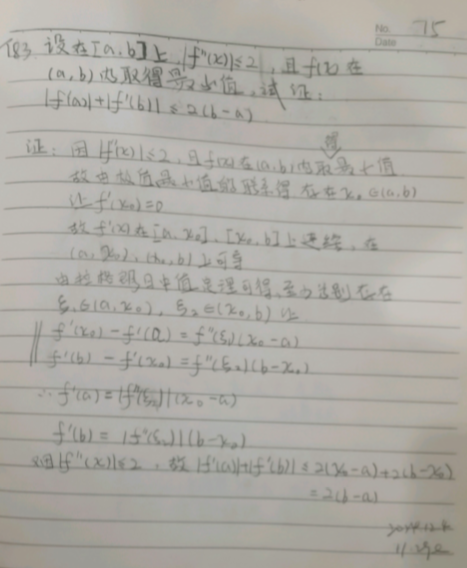 No. 75
Date
例3 设在[a,b]上,|f''(x)|≤2,且f(x)在
(a,b)内取得最小值,试证:
|f(a)|+|f'(b)|≤2(b-a)
证:因|f''(x)|≤2,且f(x)在(a,b)内取最小值
故由极值最小值的联系得 存在x₀∈(a,b)
让f'(x₀)=0
故f'(x)在[a,x₀],[x₀,b]上连续,在
(a,x₀),(x₀,b)上可导
由拉格朗日中值定理可得,至少分别存在
ξ₁∈(a,x₀),ξ₂∈(x₀,b)让
f'(x₀)-f'(a)=f''(ξ₁)(x₀-a)
f'(b)-f'(x₀)=f''(ξ₂)(b-x₀)
∴f'(a)=|f''(ξ₁)|(x₀-a)
f'(b)=|f''(ξ₂)|(b-x₀)
又因|f''(x)|≤2,故|f'(a)|+|f'(b)|≤2(x₀-a)+2(b-x₀)
=2(b-a)